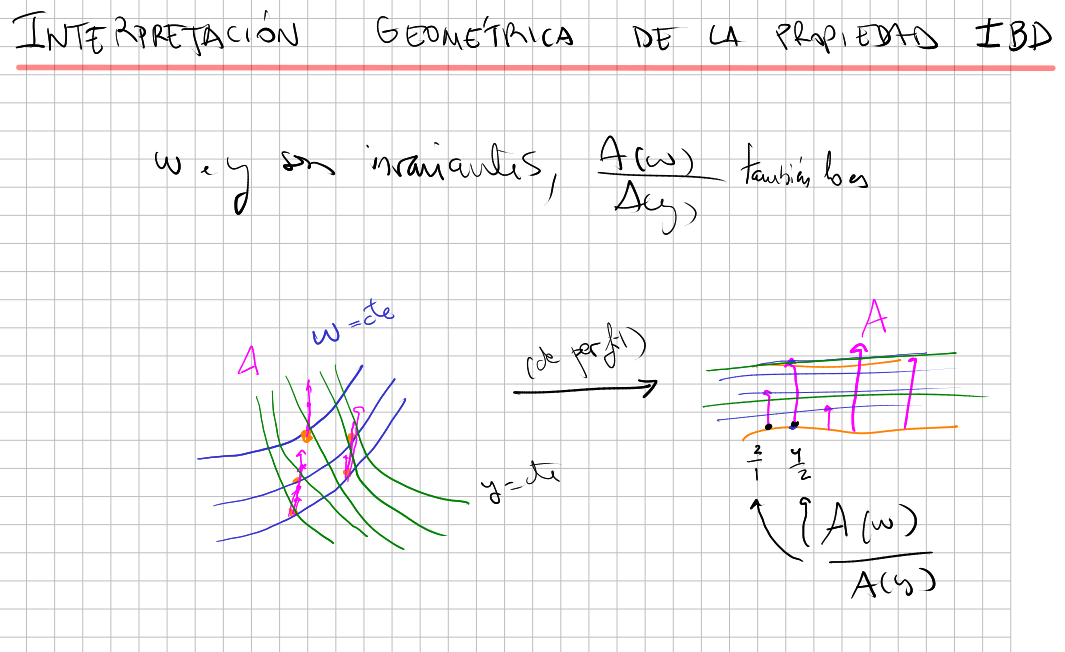 INTERPRETACIÓN GEOMÉTRICA DE LA PROPIEDAD IBD
w e y son invariantes, A(w)/A(y) también lo es
A
w = cte
(de perfil)
A
y = cte
2/1
4/2
A(w)/A(y)